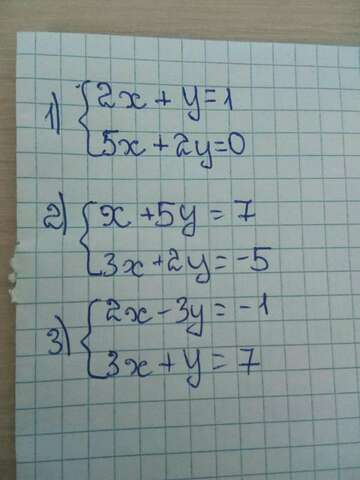 1) { 2x + y = 1
5x + 2y = 0
2) { x + 5y = 7
3x + 2y = -5
3) { 2x - 3y = -1
3x + y = 7